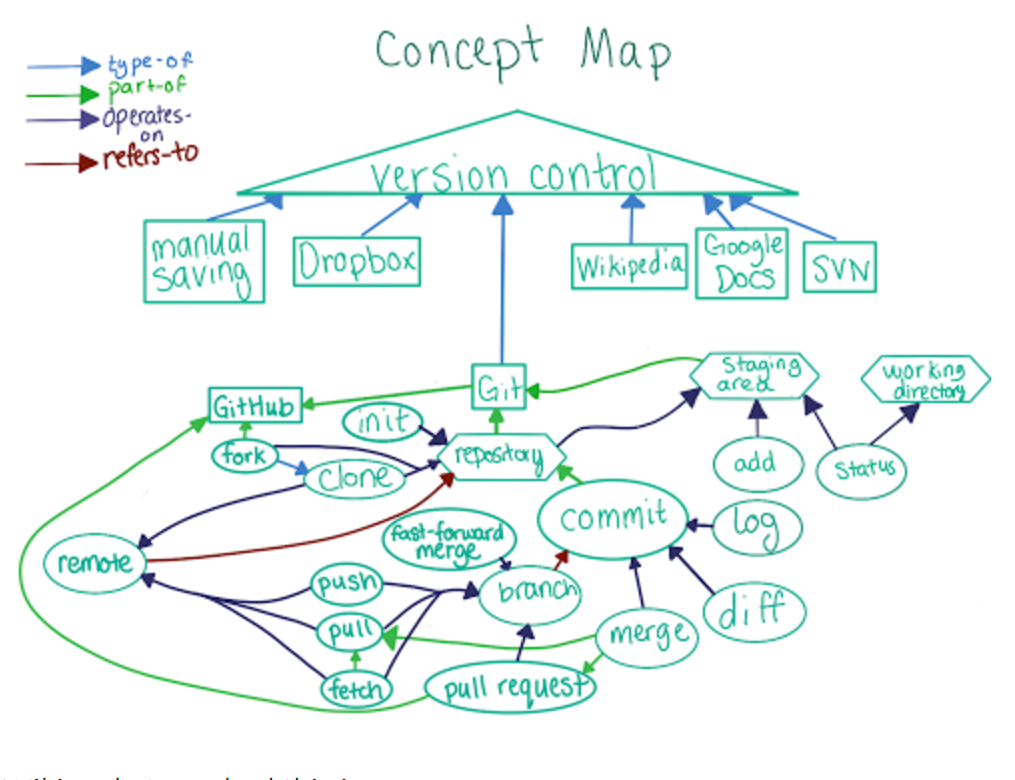 Concept Map
type-of
part-of
operates-
on
refers-to
version control
manual
saving
Dropbox
Wikipedia
Google
Docs
SVN
Git
Staging
area
working
directory
GitHub
init
fork
clone
repository
add
status
commit
log
fast-forward
merge
remote
push
branch
diff
pull
merge
fetch
pull request